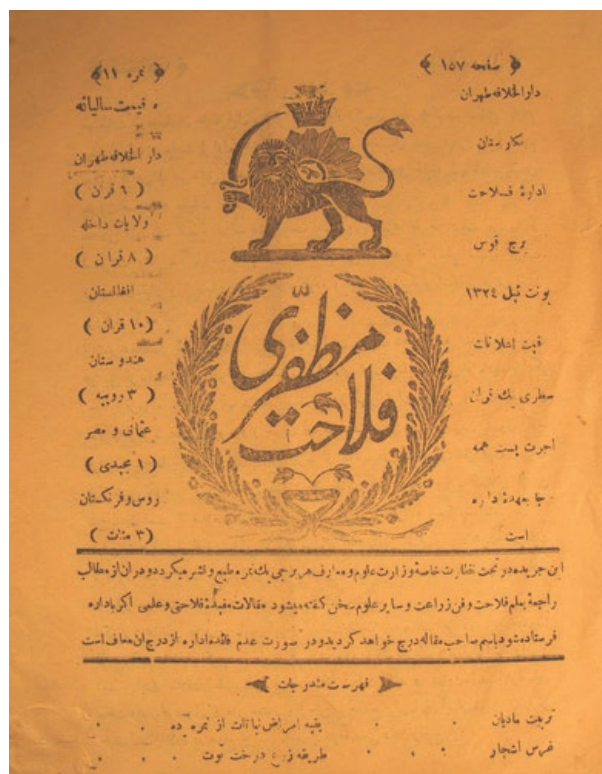 ﴿ صفحه ١٥٧ ﴾
دار الخلافه طهران
نکارستان
ادارهٔ فلاحت
برج قوس
یونت ئیل ١٣٢٤
قیمت اعلانات
سطری یك قران
اجرت پست همه
جا بعهدهٔ داره
است
﴿ نمره ١١ ﴾
قیمت سالیانه
دار الخلافه طهران
( ٦ قران )
ولایات داخله
( ٨ قران )
افغانستان
( ١٠ قران )
هندوستان
( ٣ روپیه )
عثمانی و مصر
( ١ مجیدی )
روس و فرنکستان
( ٣ منات )
فلاحت مظفری
این جریده در تحت نظارت خاصهٔ وزارت علوم و معارف هر برجی یك نمره طبع و نشر میکردد و در ان از مطالب
راجعهٔ بعلم فلاحت و فن زراعت و سایر علوم سخن کفته میشود مقالات مفیدهٔ فلاحتی و علمی اکر باداره
فرستاده شود باسم صاحب مقاله درج خواهد کردید و در صورت عدم فائده اداره از درج ان معاف است
فهرست مندرجات
تربیت مادیان . . . بقیه امراض نباتات از نمره ده . . .
غرس اشجار . . . طریقه زرع درخت توت . . .